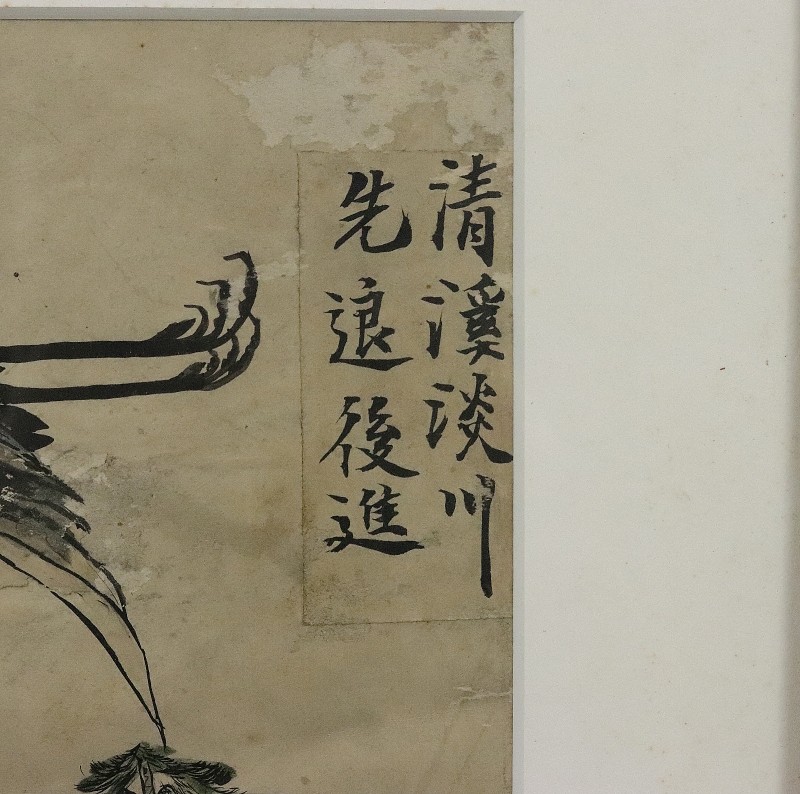 清溪淡川
先退後進